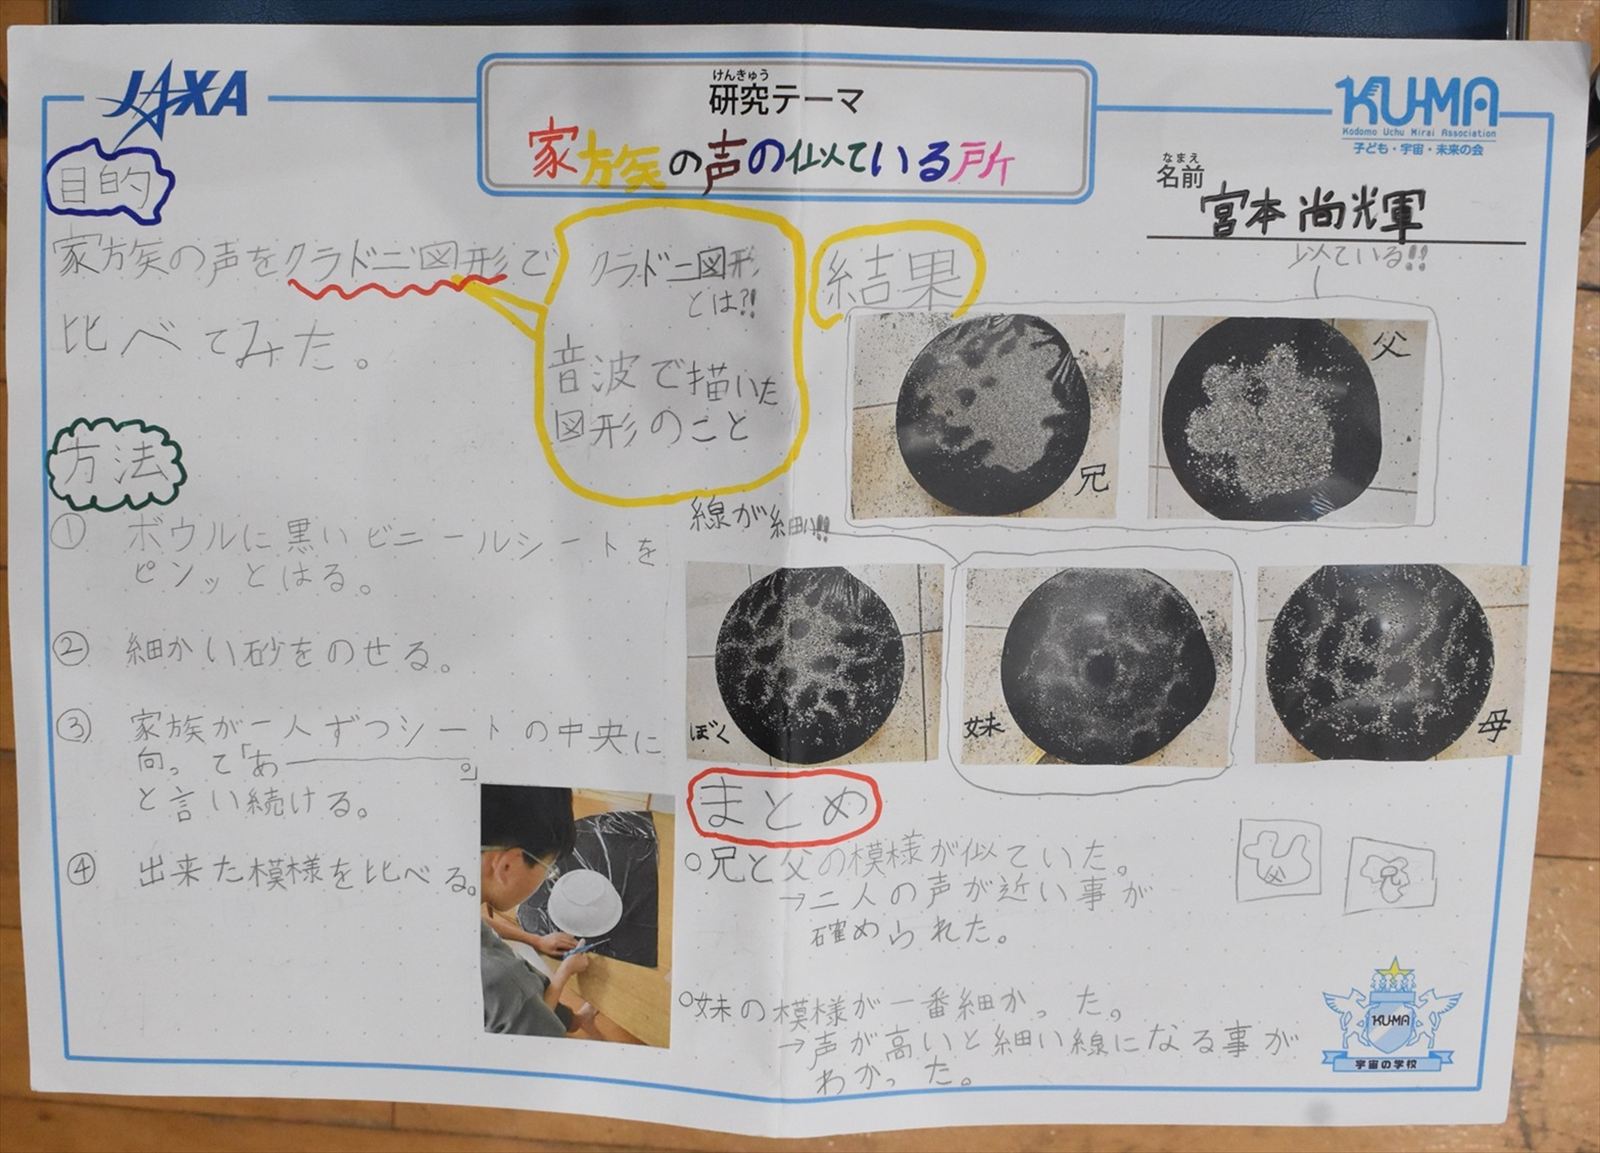 JAXA
けんきゅう
研究テーマ
家族の声の似ている所
KU-MA
Kodomo Uchu Mirai Association
子ども・宇宙・未来の会
なまえ
名前
宮本 尚輝
目的
家族の声をクラドニ図形で
比べてみた。
クラドニ図形
とは?!
音波で描いた
図形のこと
方法
① ボウルに黒いビニールシートを
ピンッとはる。
② 細かい砂をのせる。
③ 家族が一人ずつシートの中央に
向って「あ――――。」
と言い続ける。
④ 出来た模様を比べる。
結果
似ている!!
兄
父
線が細い!!
ぼく
妹
母
まとめ
○兄と父の模様が似ていた。
→二人の声が近い事が
確められた。
父
兄
○妹の模様が一番細かった。
→声が高いと細い線になる事が
わかった。
KU-MA
宇宙の学校